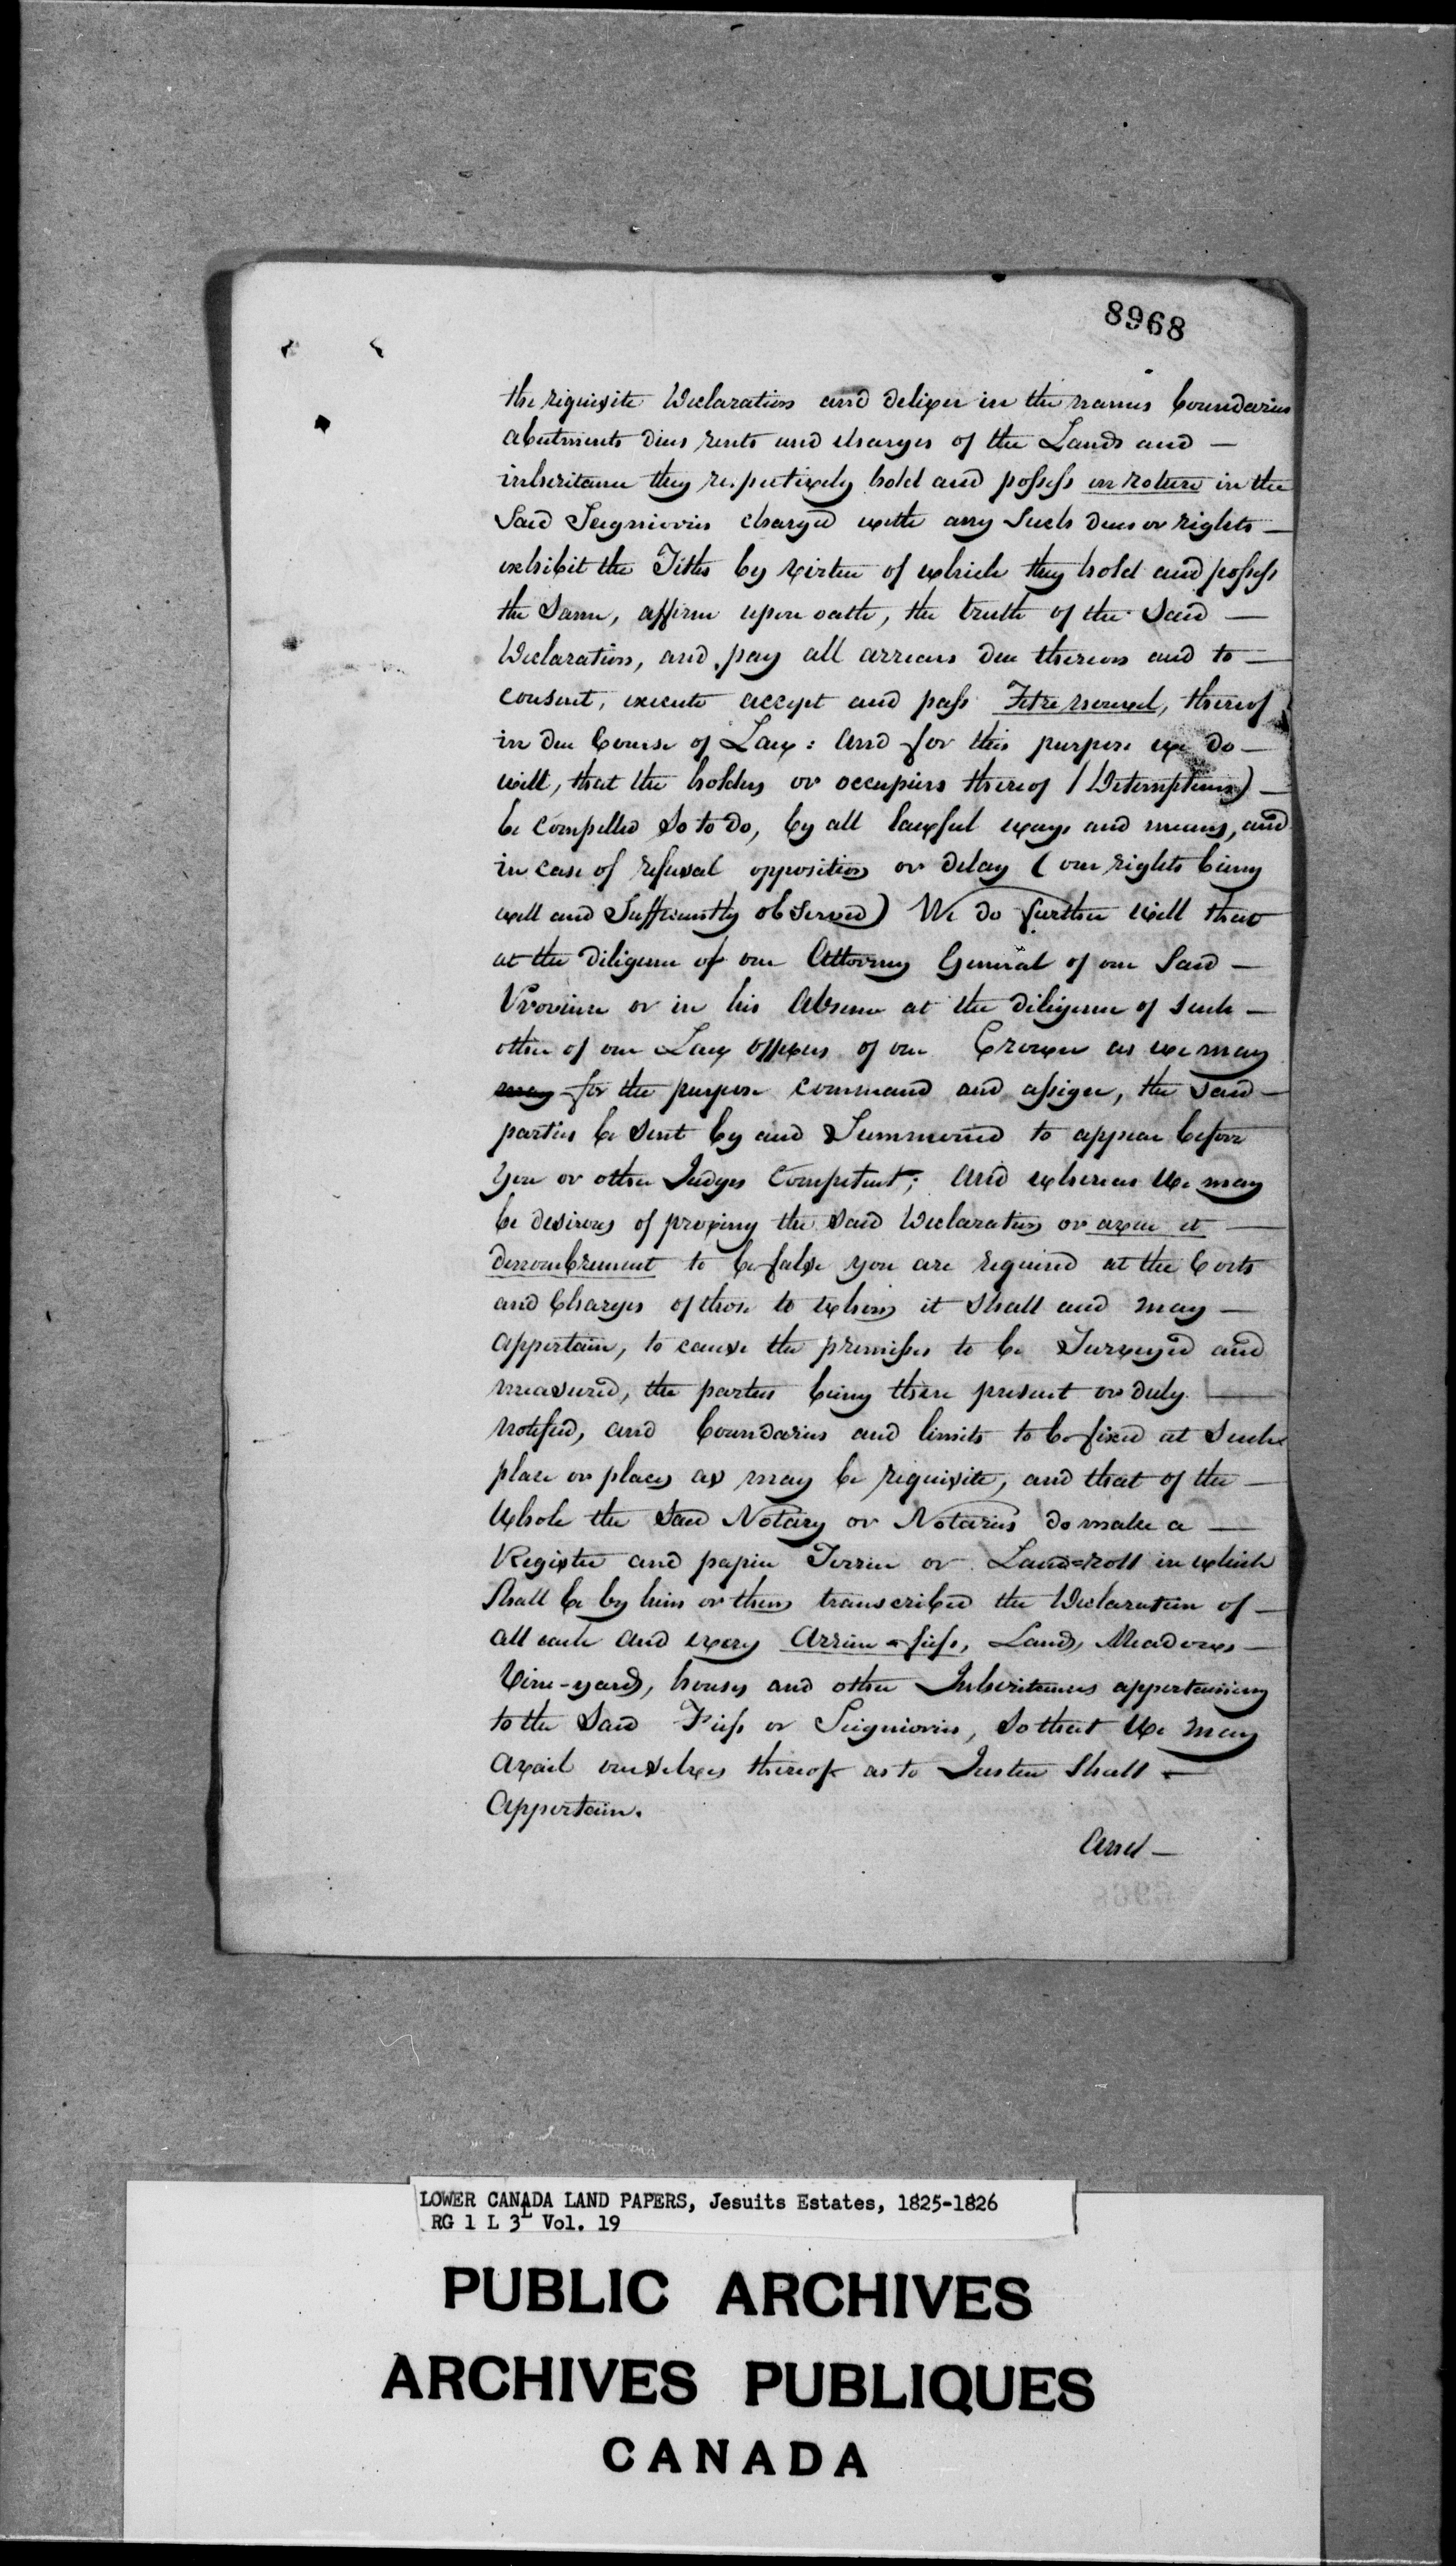 8968
the requisite Declaration and deliver in the names boundaries
abutments dues rents and charges of the Lands and —
inheritance they respectively hold and possess en roture in the
Said Seigniories charged with any Such dues or rights —
exhibit the Titles by virtue of which they hold and possess
the Same, affirm upon oath, the truth of the Said —
Declaration, and pay all arrears due thereon and to —
consent, execute accept and pass Titre nouvel, thereof
in due Course of Law: And for this purpose we do —
will, that the holders or occupiers thereof (Detempteurs) —
be Compelled So to do, by all lawful ways and means, and
in case of refusal opposition or delay (our rights being
well and Sufficiently observed) We do further will that
at the diligence of our Attorney General of our Said —
Province or in his Absence at the diligence of such —
other of our Law officers of our Crown as we may
may for the purpose command and assign, the said —
parties be Sent by and Summoned to appear before
you or other Judges Competent; And whereas We may
be desirous of proving the said Declaration or aveu et —
denombrement to be false you are required at the Costs
and Charges of those to whom it Shall and may —
appertain, to cause the premises to be Surveyed and
measured, the parties being there present or duly —
notified, and boundaries and limits to be fixed at Such
place or places as may be requisite, and that of the —
Whole the Said Notary or Notaries do make a —
Register and papier Terrier or Land=roll in which
Shall be by him or them transcribed the Declaration of —
all each and every Arriere=fiefs, Lands, Meadows —
Vine-yards, houses and other Inheritances appertaining
to the Said Fiefs or Seigniories, So that We may
avail ourselves thereof as to Justice Shall —
Appertain.
And —
LOWER CANADA LAND PAPERS, Jesuits Estates, 1825-1826
RG 1 L 3L Vol. 19
PUBLIC ARCHIVES
ARCHIVES PUBLIQUES
CANADA